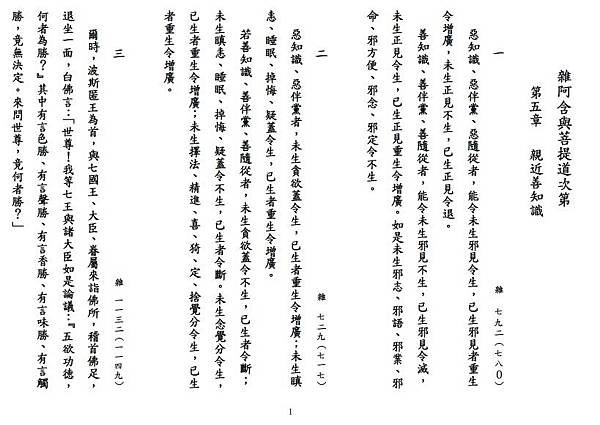 雜阿含與菩提道次第
第五章　親近善知識
一　雜　七九二（七八0）
惡知識、惡伴黨、惡隨從者，能令未生邪見令生，已生邪見者重生
令增廣，未生正見不生，已生正見令退。
善知識、善伴黨、善隨從者，能令未生邪見不生，已生邪見令滅，
未生正見令生，已生正見重生令增廣。如是未生邪志、邪語、邪業、邪
命、邪方便、邪念、邪定令不生。
二　雜　七二九（七一七）
惡知識、惡伴黨者，未生貪欲蓋令生，已生者重生令增廣；未生瞋
恚、睡眠、掉悔、疑蓋令生，已生者重生令增廣。
若善知識、善伴黨、善隨從者，未生貪欲蓋令不生，已生者令斷；
未生瞋恚、睡眠、掉悔、疑蓋令不生，已生者令斷。未生念覺分令生，
已生者重生令增廣；未生擇法、精進、喜、猗、定、捨覺分令生，已生
者重生令增廣。
三　雜　一一三二（一一四九）
爾時，波斯匿王為首，與七國王、大臣、眷屬來詣佛所，稽首佛足，
退坐一面，白佛言：「世尊！我等七王與諸大臣如是論議：『五欲功德，
何者為勝？』其中有言色勝、有言聲勝、有言香勝、有言味勝、有言觸
勝，竟無決定。來問世尊，竟何者勝？」
1